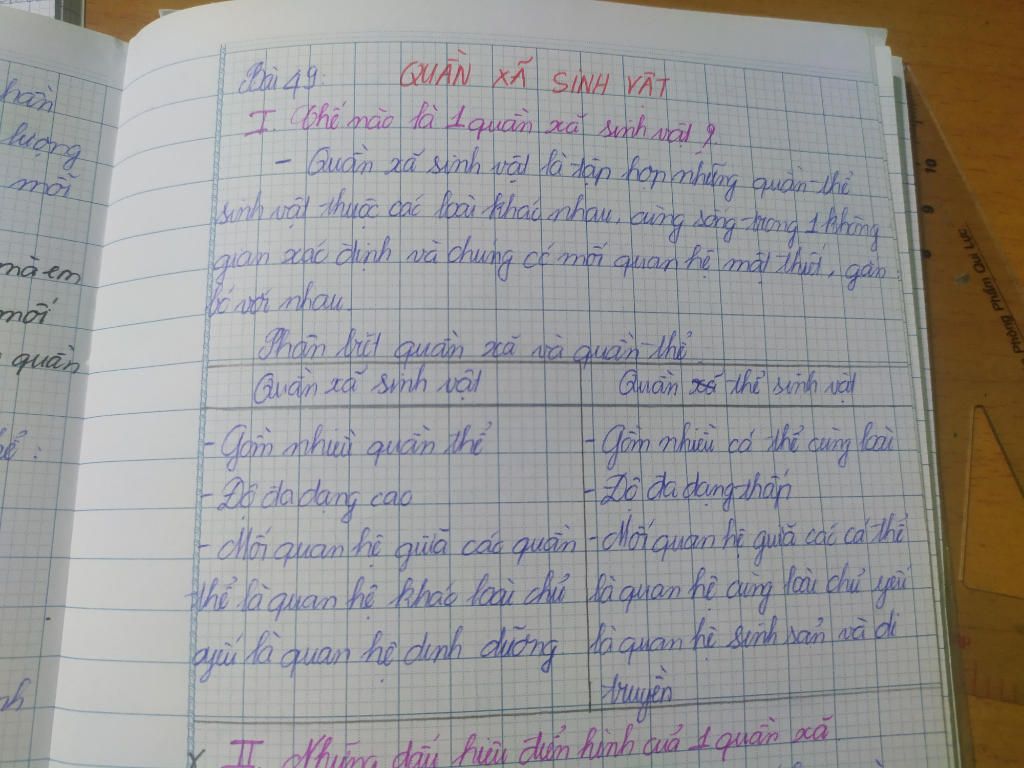 hần
lượng
mỗi
mà em
mối
quần
Bài 49: QUẦN XÃ SINH VẬT
I. Thế nào là 1 quần xã sinh vật?
- Quần xã sinh vật là tập hợp những quần thể
sinh vật thuộc các loài khác nhau, cùng sống trong 1 không
gian xác định và chúng có mối quan hệ mật thiết, gắn
bó với nhau.
Phân biệt quần xã và quần thể
Quần xã sinh vật
- Gồm nhiều quần thể
- Độ đa dạng cao
- Mối quan hệ giữa các quần
thể là quan hệ khác loài chủ
yếu là quan hệ dinh dưỡng
Quần thể sinh vật
- Gồm nhiều cá thể cùng loài
- Độ đa dạng thấp
- Mối quan hệ giữa các cá thể
là quan hệ cùng loài chủ yếu
là quan hệ sinh sản và di
truyền
II. Những dấu hiệu điển hình của 1 quần xã
10
9
8
Phòng Phẩm Chi Lực